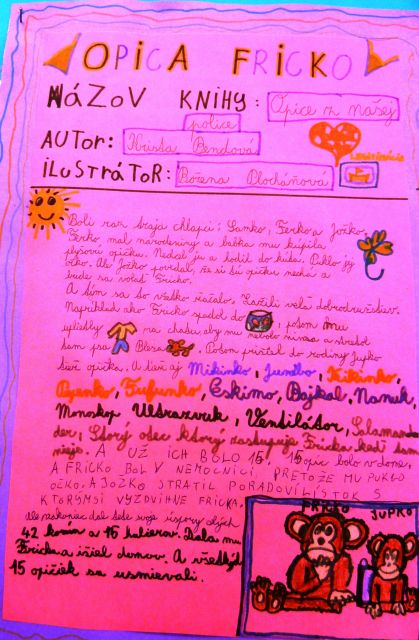 OPICA FRICKO
NÁZOV KNIHY: Opice z našej
police
AUTOR: Krista Bendová
ILUSTRÁTOR: Božena Plocháňová
Boli raz traja chlapci: Samko, Ferko a Jožko.
Ferko mal narodeniny a babka mu kúpila
plyšovú opičku. Nedal ju a hodil do kúta. Puklo jej
očko. Ale Jožko povedal, že si tú opičku nechá a
bude sa volať Fricko.
A tým sa to všetko začalo. Zažili veľa dobrodružstiev.
Napríklad ako Fricko spadol do , potom mu
uplietli na chatu aby mu nebolo zima a stretol
sam psa Bleso . Potom prišiel do rodiny Jupko
tiež opička. A tiež aj Mikinko, Jumbo, Kikinko,
Pepenko, Fufunko, Eskimo, Bajkal, Nanuk,
Monokop Ultrazvuk, Ventilátor, Salamander
der, Starý otec ktorý zastupuje Fricka keď sam
nieje. A UŽ ICH BOLO 15! 15 opíc bolo v dome,
A FRICKO BOL V NEMOCNICI, PRETOŽE MU PUKLO
OČKO. A JOŽKO STRATIL PORADOVÍ LÍSTOK S
KTORÝM SI VYZDVIHNE FRICKA.
Ale nakoniec dal tete svoje úspory
42 korún a 15 halierov. Dala mu
Fricka a išiel domov. A všetkých
15 opičiek sa usmievali.
FRICKO JUPKO